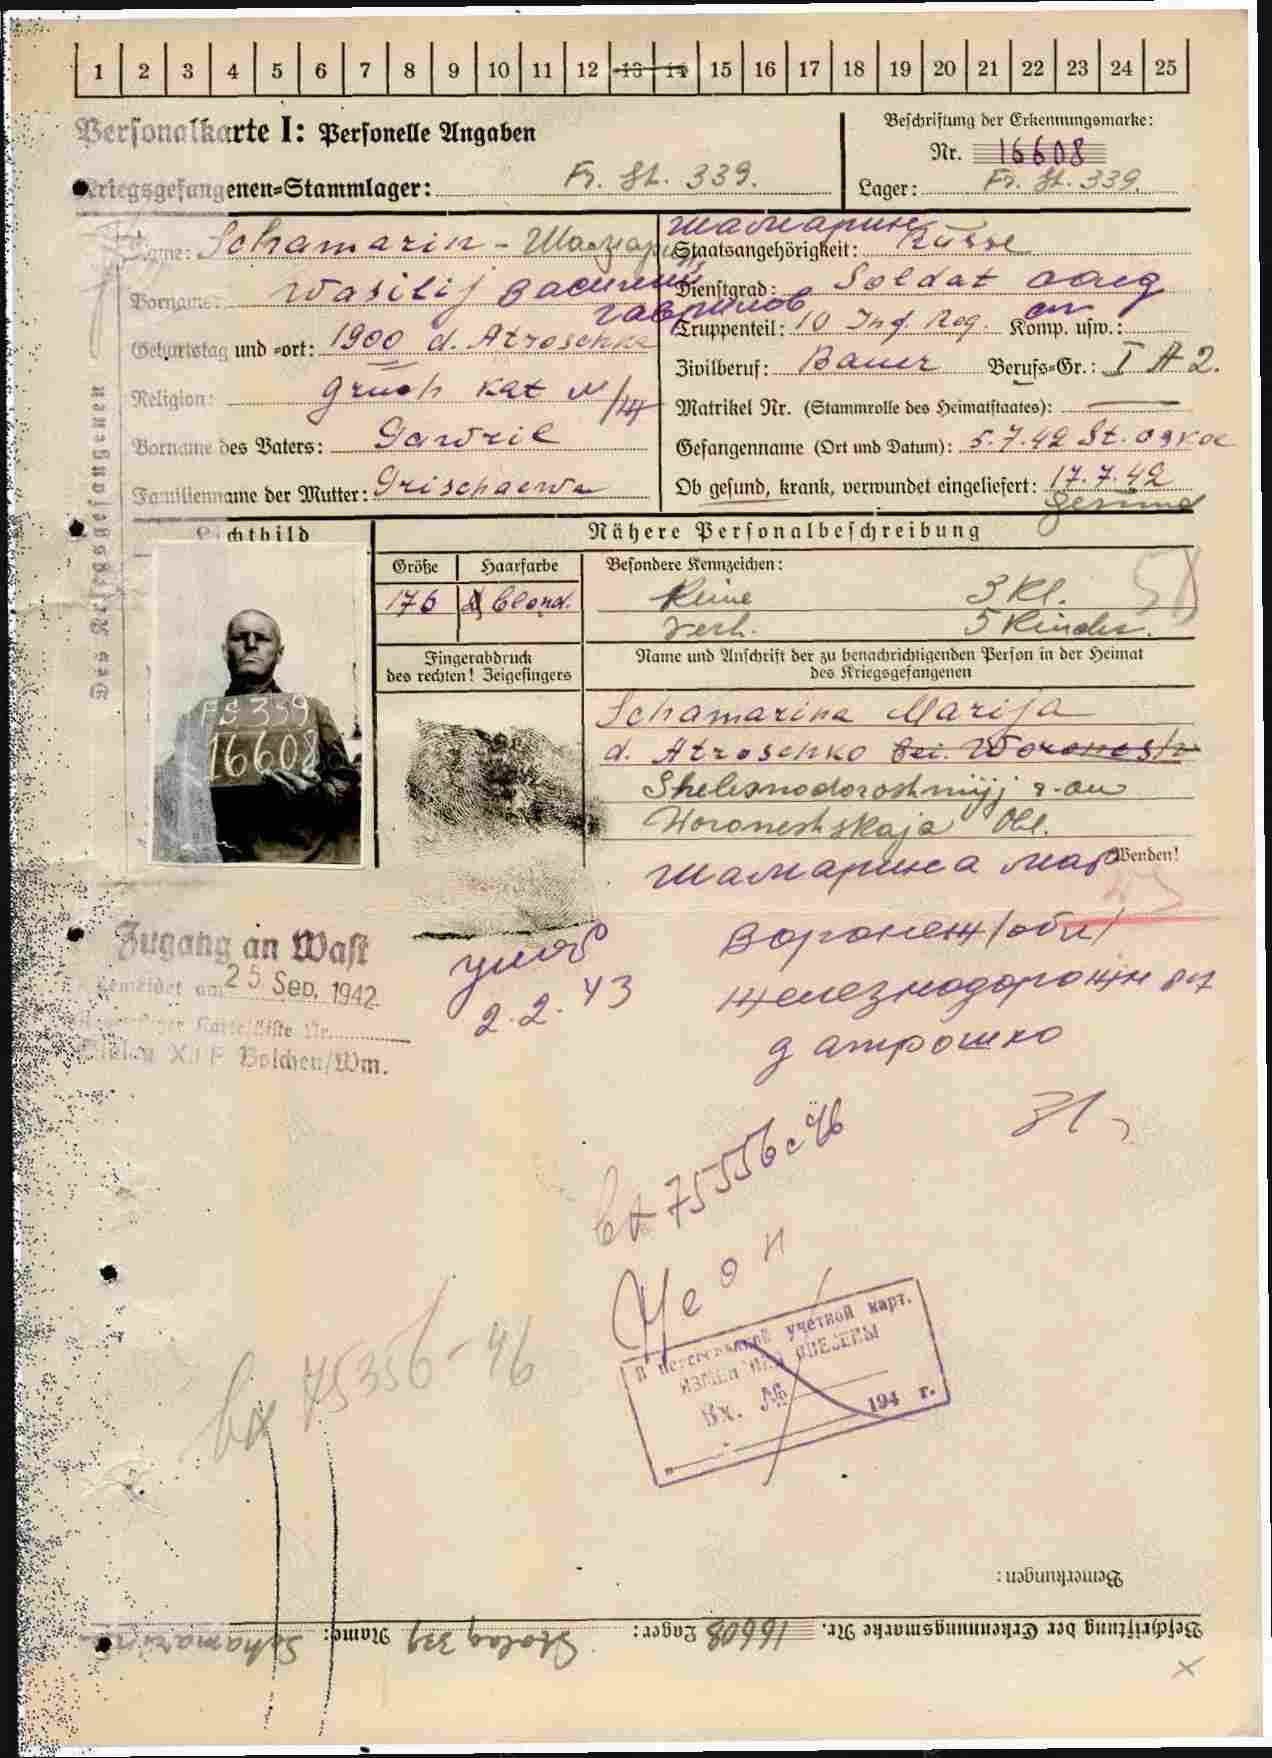 1 2 3 4 5 6 7 8 9 10 11 12 13 14 15 16 17 18 19 20 21 22 23 24 25
Personalkarte I: Personelle Angaben
Beschriftung der Erkennungsmarke:
Nr. 16608
Kriegsgefangenen-Stammlager: Fr. St. 339.
Lager: Fr. St. 339
Des Kriegsgefangenen
Name: Schamarin - Шамарин
Шамарин
Staatsangehörigkeit: Russe
Vorname: Wasilij Василий
Гаврилов
Dienstgrad: Soldat
Truppenteil: 10 Inf. Reg. Komp. usw.:
Geburtstag und =ort: 1900 d. Atroschka
Zivilberuf: Bauer Berufs=Gr.: I A 2.
Religion: griech kat
Matrikel Nr. (Stammrolle des Heimatstaates): —
Vorname des Vaters: Gawril
Gefangenname (Ort und Datum): 5.7.42 St. Oskol
Familienname der Mutter: Grischaewa
Ob gesund, krank, verwundet eingeliefert: 17.7.42
gesund
Lichtbild
Nähere Personalbeschreibung
Größe Haarfarbe Besondere Kennzeichen:
176 blond. Keine 3 Kl.
verh. 5 Kinder.
Fingerabdruck
des rechten! Zeigefingers
Name und Anschrift der zu benachrichtigenden Person in der Heimat
des Kriegsgefangenen
FS 339
16608
Schamarina Marija
d. Atroschko bei Woronesh
Shelesnodoroshnyj r-on
Woroneshskaja Obl.
Wenden!
Шамарина Мар
Воронеж/обл/
Железнодорожн р-н
д Атрошко
умер
2.2.43
Zugang an Wast
gemeldet am 25 Sep. 1942
Stalag XII F Bolchen/Wm.
31
вх 75556-46
вх 75356-46
учетной карт.
изменения внесены
Вх. №
194 г.
Bemerkungen:
Beschriftung der Erkennungsmarke Nr. 16608 Lager: Stalag 339 Name: Schamarin